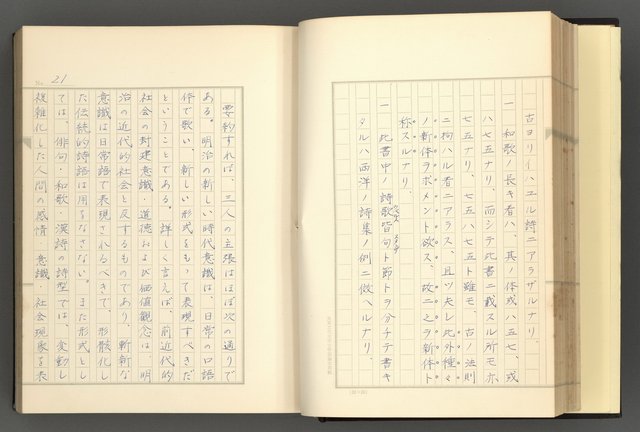 古ヨリイハユル詩ニアラザルナリ、
一 和歌ノ長キ者ハ、其ノ体或ハ五七、或
ハ七五ナリ、而シテ此書ニ載スル所モ亦
七五ナリ、七五ハ七五ト雖モ、古ノ法則
ニ拘ハル者ニアラス、且ツ夫レ此外種々
ノ新体ヲ求メント欲ス、故ニ之ヲ新体ト
称スルナリ、
一 此書中ノ詩歌皆句ト節トヲ分チテ書キ
タルハ西洋ノ詩集ノ例ニ倣ヘルナリ、
No. 21
要約すれば、三人の主張はほぼ次の通りで
ある。明治の新しい時代意識は、日常の口語
体で歌い、新しい形式をもって表現すべきだ
ということである。詳しく言えば、前近代的
社会の封建意識・道徳および価値観念は、明
治の近代的社会と反するものであり、斬新な
意識は日常語で表現されるべきで、形骸化し
た伝統的詩語は用をなさない。また形式とし
ては、俳句・和歌・漢詩の詩型では、変動し
複雑化した人間の感情・意識・社会現象を表